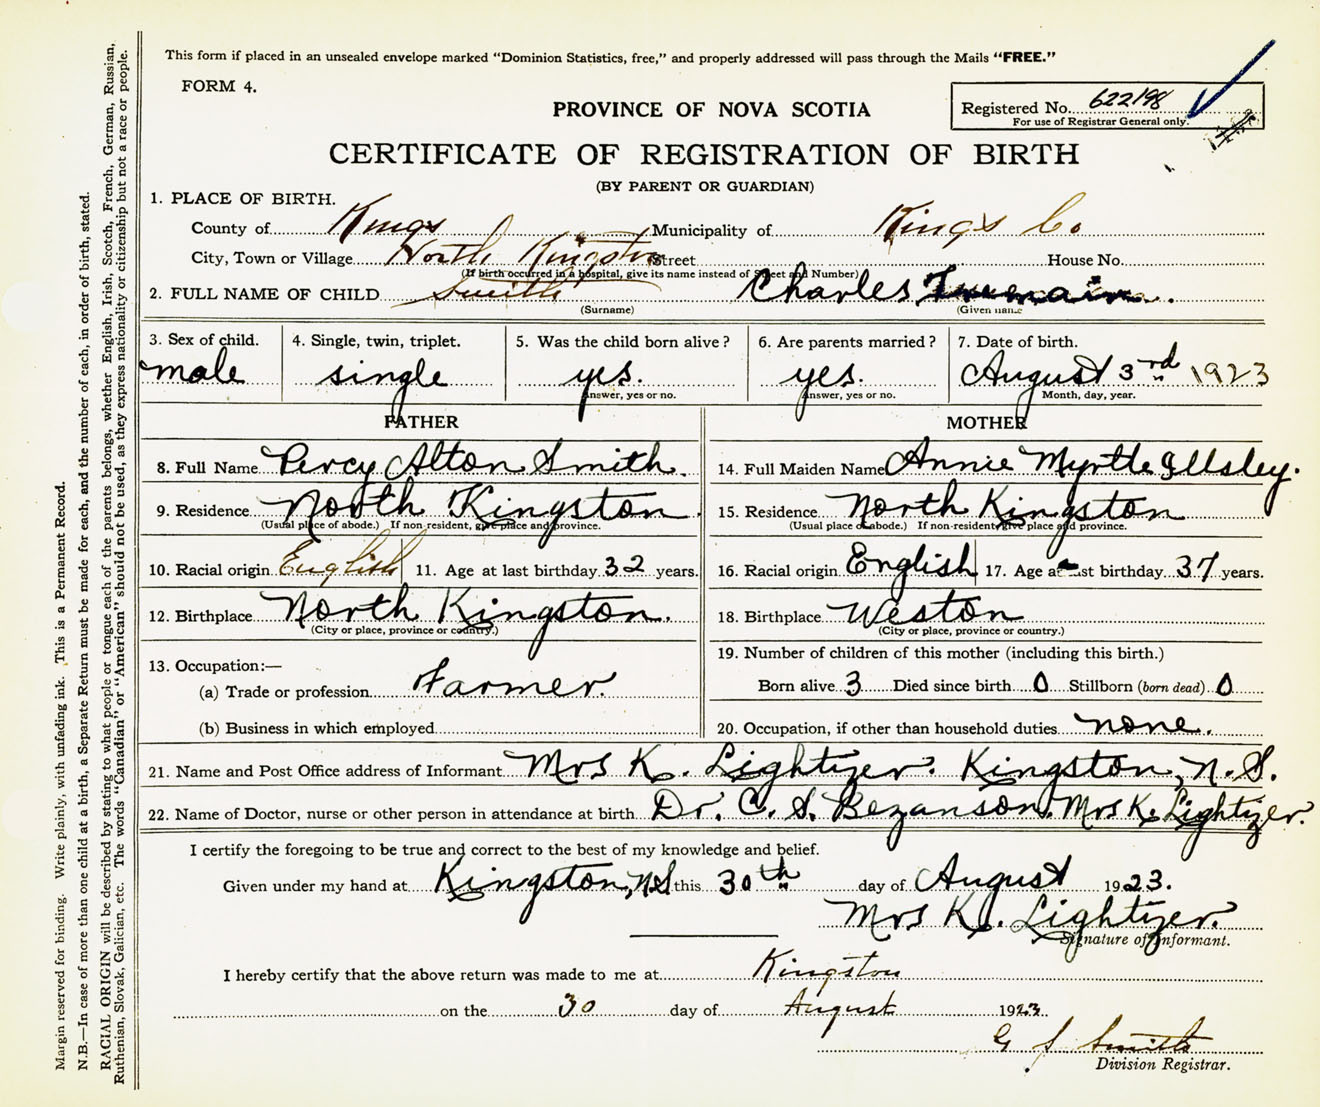 This form if placed in an unsealed envelope marked "Dominion Statistics, free," and properly addressed will pass through the Mails "FREE."
FORM 4.
PROVINCE OF NOVA SCOTIA
Registered No. 622198
For use of Registrar General only.
CERTIFICATE OF REGISTRATION OF BIRTH
(BY PARENT OR GUARDIAN)
1. PLACE OF BIRTH.
County of Kings Municipality of Kings Co
City, Town or Village North Kingston Street House No.
(If birth occurred in a hospital, give its name instead of Street and Number)
2. FULL NAME OF CHILD Smith Charles
(Surname) (Given name
3. Sex of child. 4. Single, twin, triplet. 5. Was the child born alive? 6. Are parents married? 7. Date of birth.
male single yes. yes. August 3rd 1923
Answer, yes or no. Answer, yes or no. Month, day, year.
FATHER MOTHER
8. Full Name Percy Alton Smith. 14. Full Maiden Name Annie Myrtle Illsley.
9. Residence North Kingston. 15. Residence North Kingston
(Usual place of abode.) If non-resident, give place and province. (Usual place of abode.) If non-resident give place and province.
10. Racial origin English 11. Age at last birthday 32 years. 16. Racial origin English 17. Age at last birthday 37 years.
12. Birthplace North Kingston. 18. Birthplace Weston
(City or place, province or country.) (City or place, province or country.)
13. Occupation:— 19. Number of children of this mother (including this birth.)
(a) Trade or profession Farmer. Born alive 3 Died since birth 0 Stillborn (born dead) 0
(b) Business in which employed 20. Occupation, if other than household duties none.
21. Name and Post Office address of Informant Mrs K. Lightizer. Kingston, N.S.
22. Name of Doctor, nurse or other person in attendance at birth Dr. C. S. Bezanson. Mrs K. Lightizer.
I certify the foregoing to be true and correct to the best of my knowledge and belief.
Given under my hand at Kingston, N.S this 30th day of August 1923.
Mrs K. Lightizer.
Signature of Informant.
I hereby certify that the above return was made to me at Kingston
on the 30 day of August 1923
G S Smith
Division Registrar.
Margin reserved for binding. Write plainly, with unfading ink. This is a Permanent Record.
N.B.—In case of more than one child at a birth, a Separate Return must be made for each, and the number of each, in order of birth, stated.
RACIAL ORIGIN will be described by stating to what people or tongue each of the parents belongs, whether English, Irish, Scotch, French, German, Russian,
Ruthenian, Slovak, Galician, etc. The words "Canadian" or "American" should not be used, as they express nationality or citizenship but not a race or people.